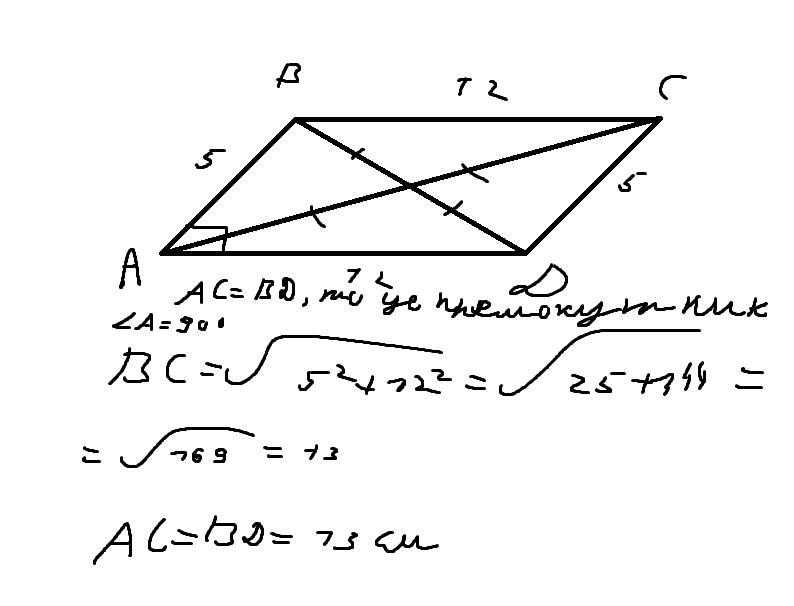 B 12 C
5
5
A D
12
AC=BD, то це прямокутник
∠A=90°
BC=√5²+12² = √25+144 =
= √169 = 13
AC=BD= 13 см